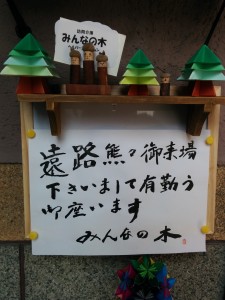 みんなの木
遠路熊々御来場
下さいまして有勤う
御座います
みんなの木